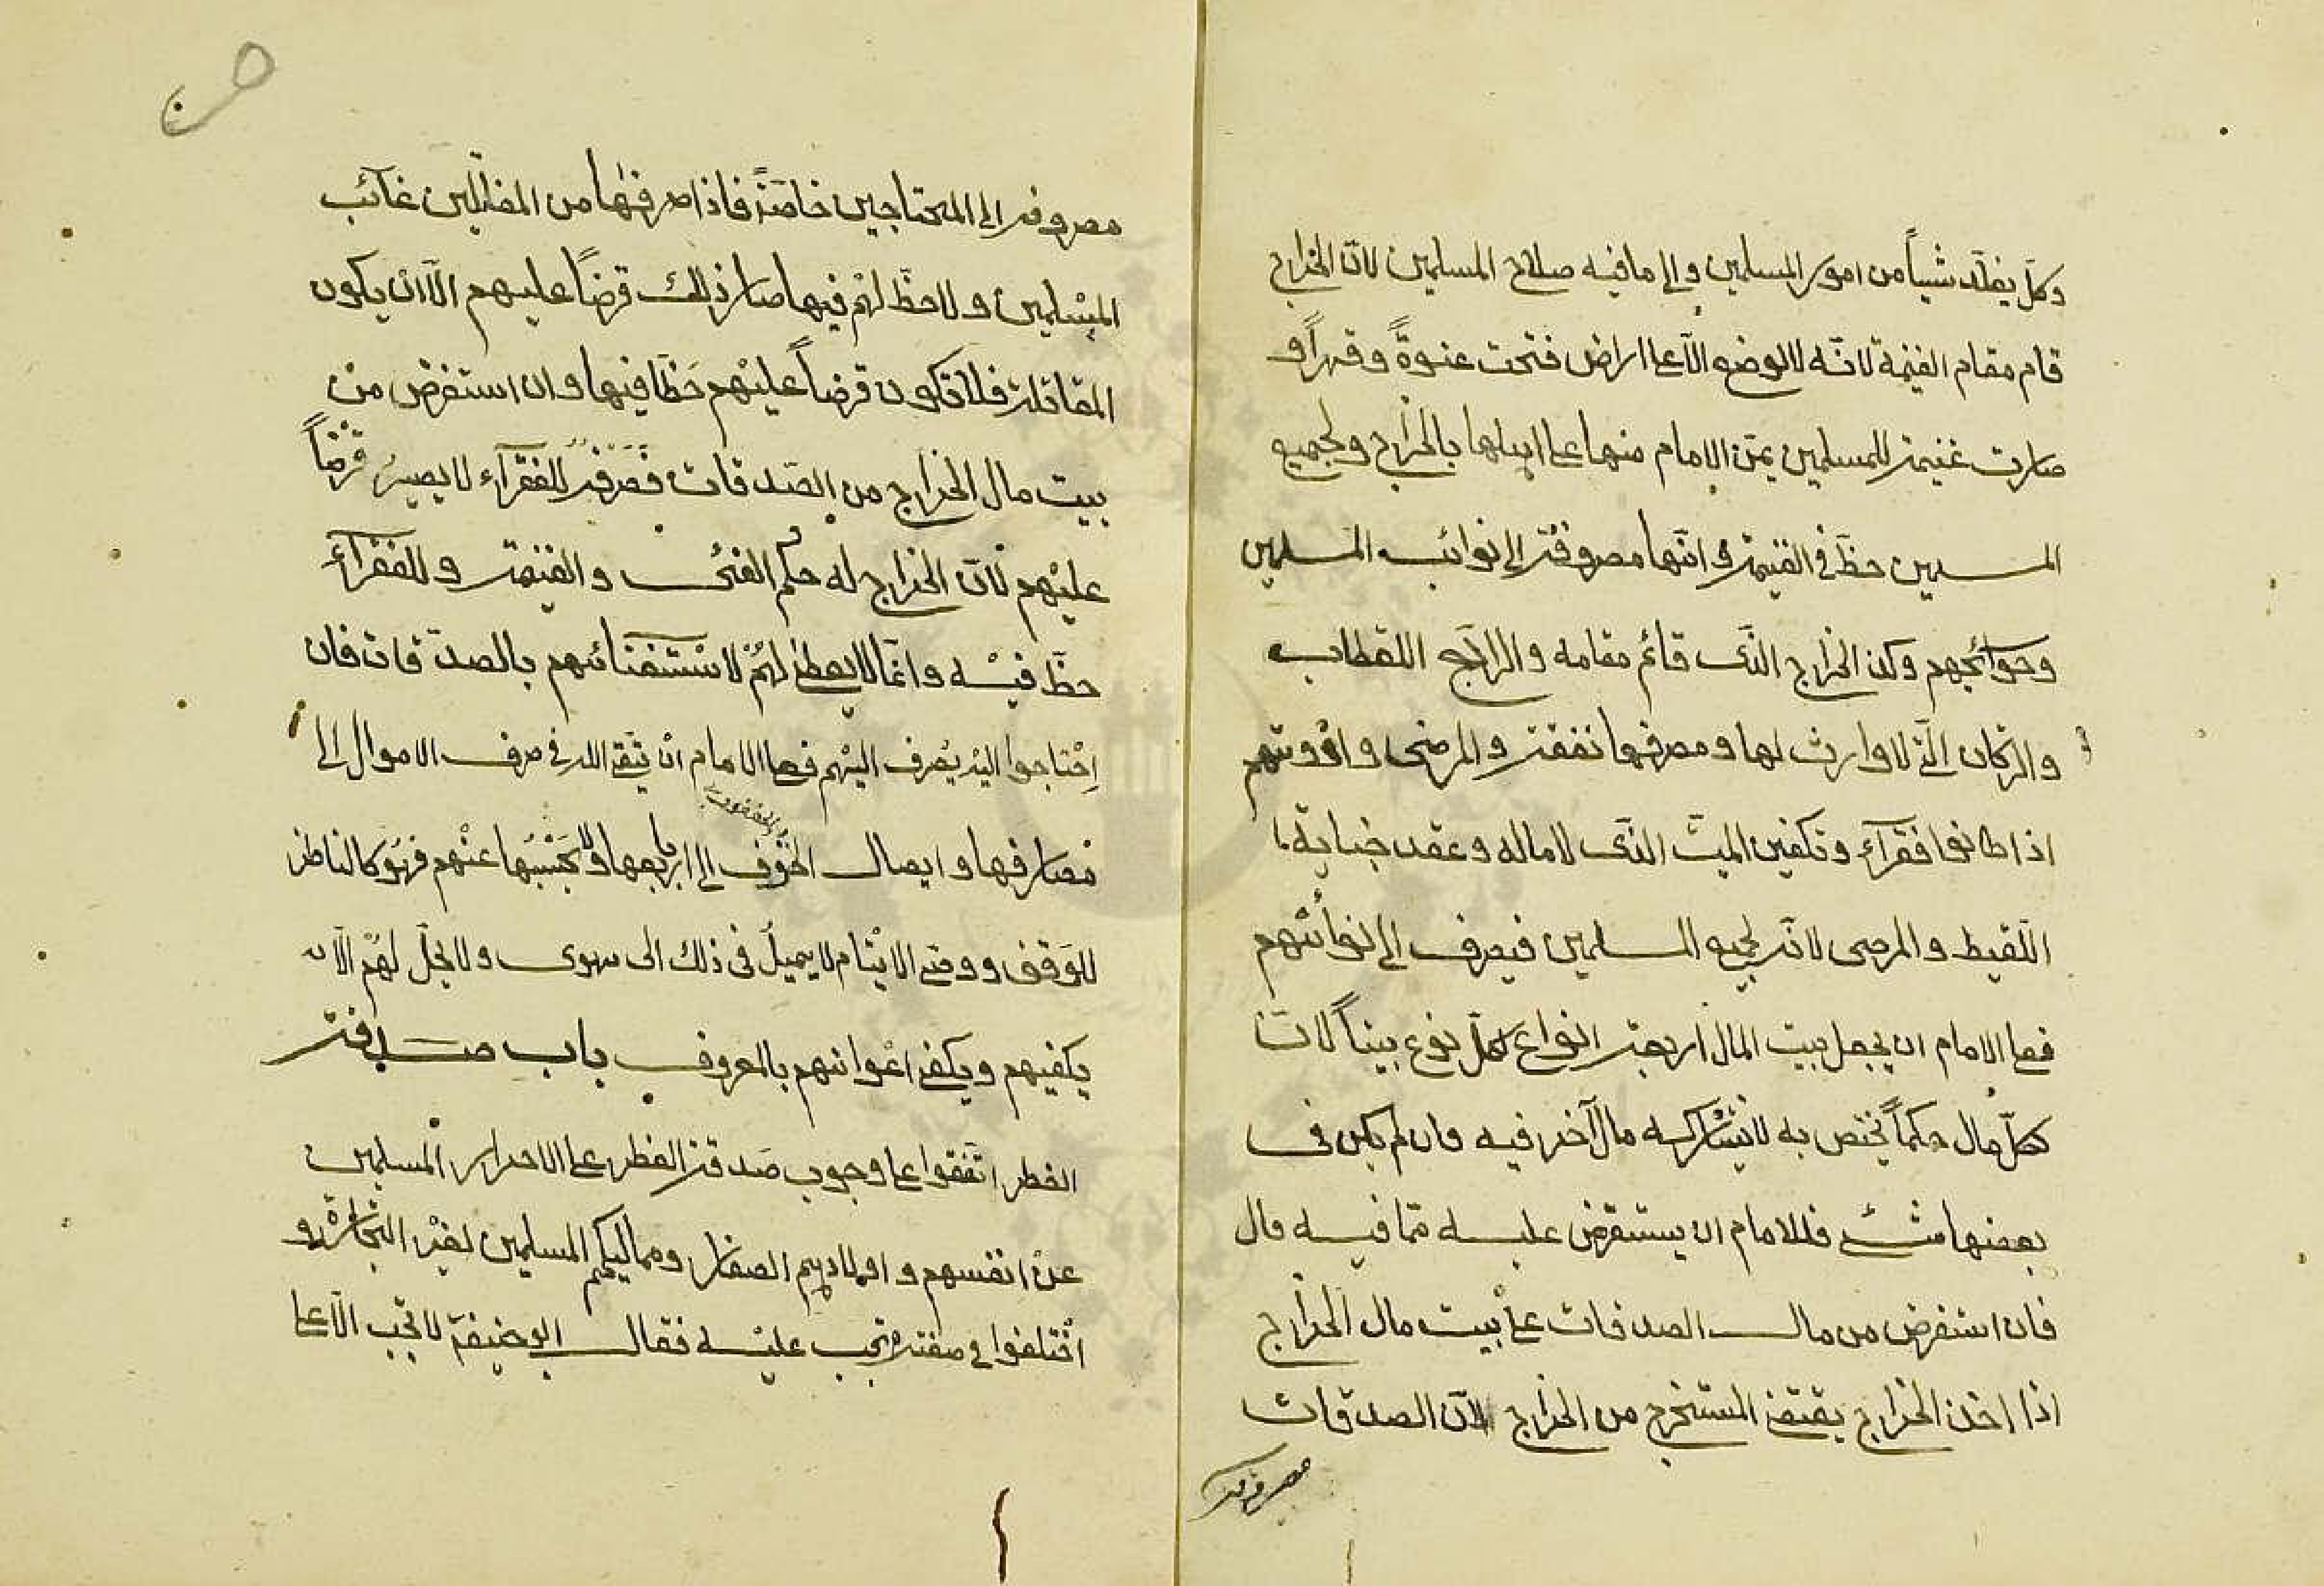 وكلّ يقلّد شيئاً من امور المسلمين والى ما فيه صلاح المسلمين لانّ الخراج
قام مقام الغنيمة لانّه لا يوضع الّا على اراض فتحت عنوةً وقهراً و
صارت غنيمة للمسلمين يمنّ الامام منها على اهلها بالخراج ولجميع
المسلمين حظّ في الغنيمة وانّها مصروفة الى نوائب المسلمين
وحوائجهم وكذا الخراج الذّى قائم مقامه والرابع اللقطات
والتركات الّتى لا وارث لها ومصرفها نفقة والمرضى وادويتهم
اذا كانوا فقرآء وتكفين الميّت الذّى لا ماله وعقد جناية
اللّقيط والمرضى لانّه لجميع المسلمين فيصرف الى نوائبهم
فعلى الامام ان يجعل بيت المال اربعة انواع لكلّ نوع بيتاً لانّ
لكلّ مال حكماً يختصّ به لا يشاركه مال آخر فيه فان لم يكن فى
بعضها شئ فللامام ان يستقرض عليه ممّا فيه مال
فان استقرض من مال الصدقات على بيت مال الخراج
اذا اخذ الخراج يقتضى المستخرج من الخراج لانّ الصدقات
مصروفة
مصروفة الى المحتاجين خاصّةً فاذا صرفها من المقاتلين غآئب
المسلمين ولا حظّ لهم فيها صار ذلك قرضاً عليهم الّا ان يكون
المقاتلة فلا تكون قرضاً عليهم حظّا فيها وان استقرض من
بيت مال الخراج من الصّدقات فصرفه للفقرآء لا يصير قرضاً
عليهم لانّ الخراج له حكم الفئ والغنيمة وللفقرآء
حظّ فيه وانّما لا يعطى لهم لاستغنائهم بالصدّقات فان
احتاجوا اليه يصرف اليهم فعلى الامام ان يتّقى الله في صرف الاموال الى
مصارفها وايصال الحقوق الى اربابها ولا يحبسها عنهم فهو كالناظر
للوقف ووصى الايتام لا يميل فى ذلك الى هوى ولا يحلّ لهم الّا
يكفيهم ويكفى اعوانهم بالمعروف باب صدقة
الفطر اتّفقوا على وجوب صدقة الفطر على الاحرار المسلمين
عن انفسهم واولادهم الصغار ومماليكهم المسلمين لغير التجارة و
اختلفوا في صفة من تجب عليه فقال ابو حنيفة لا تجب الّا على